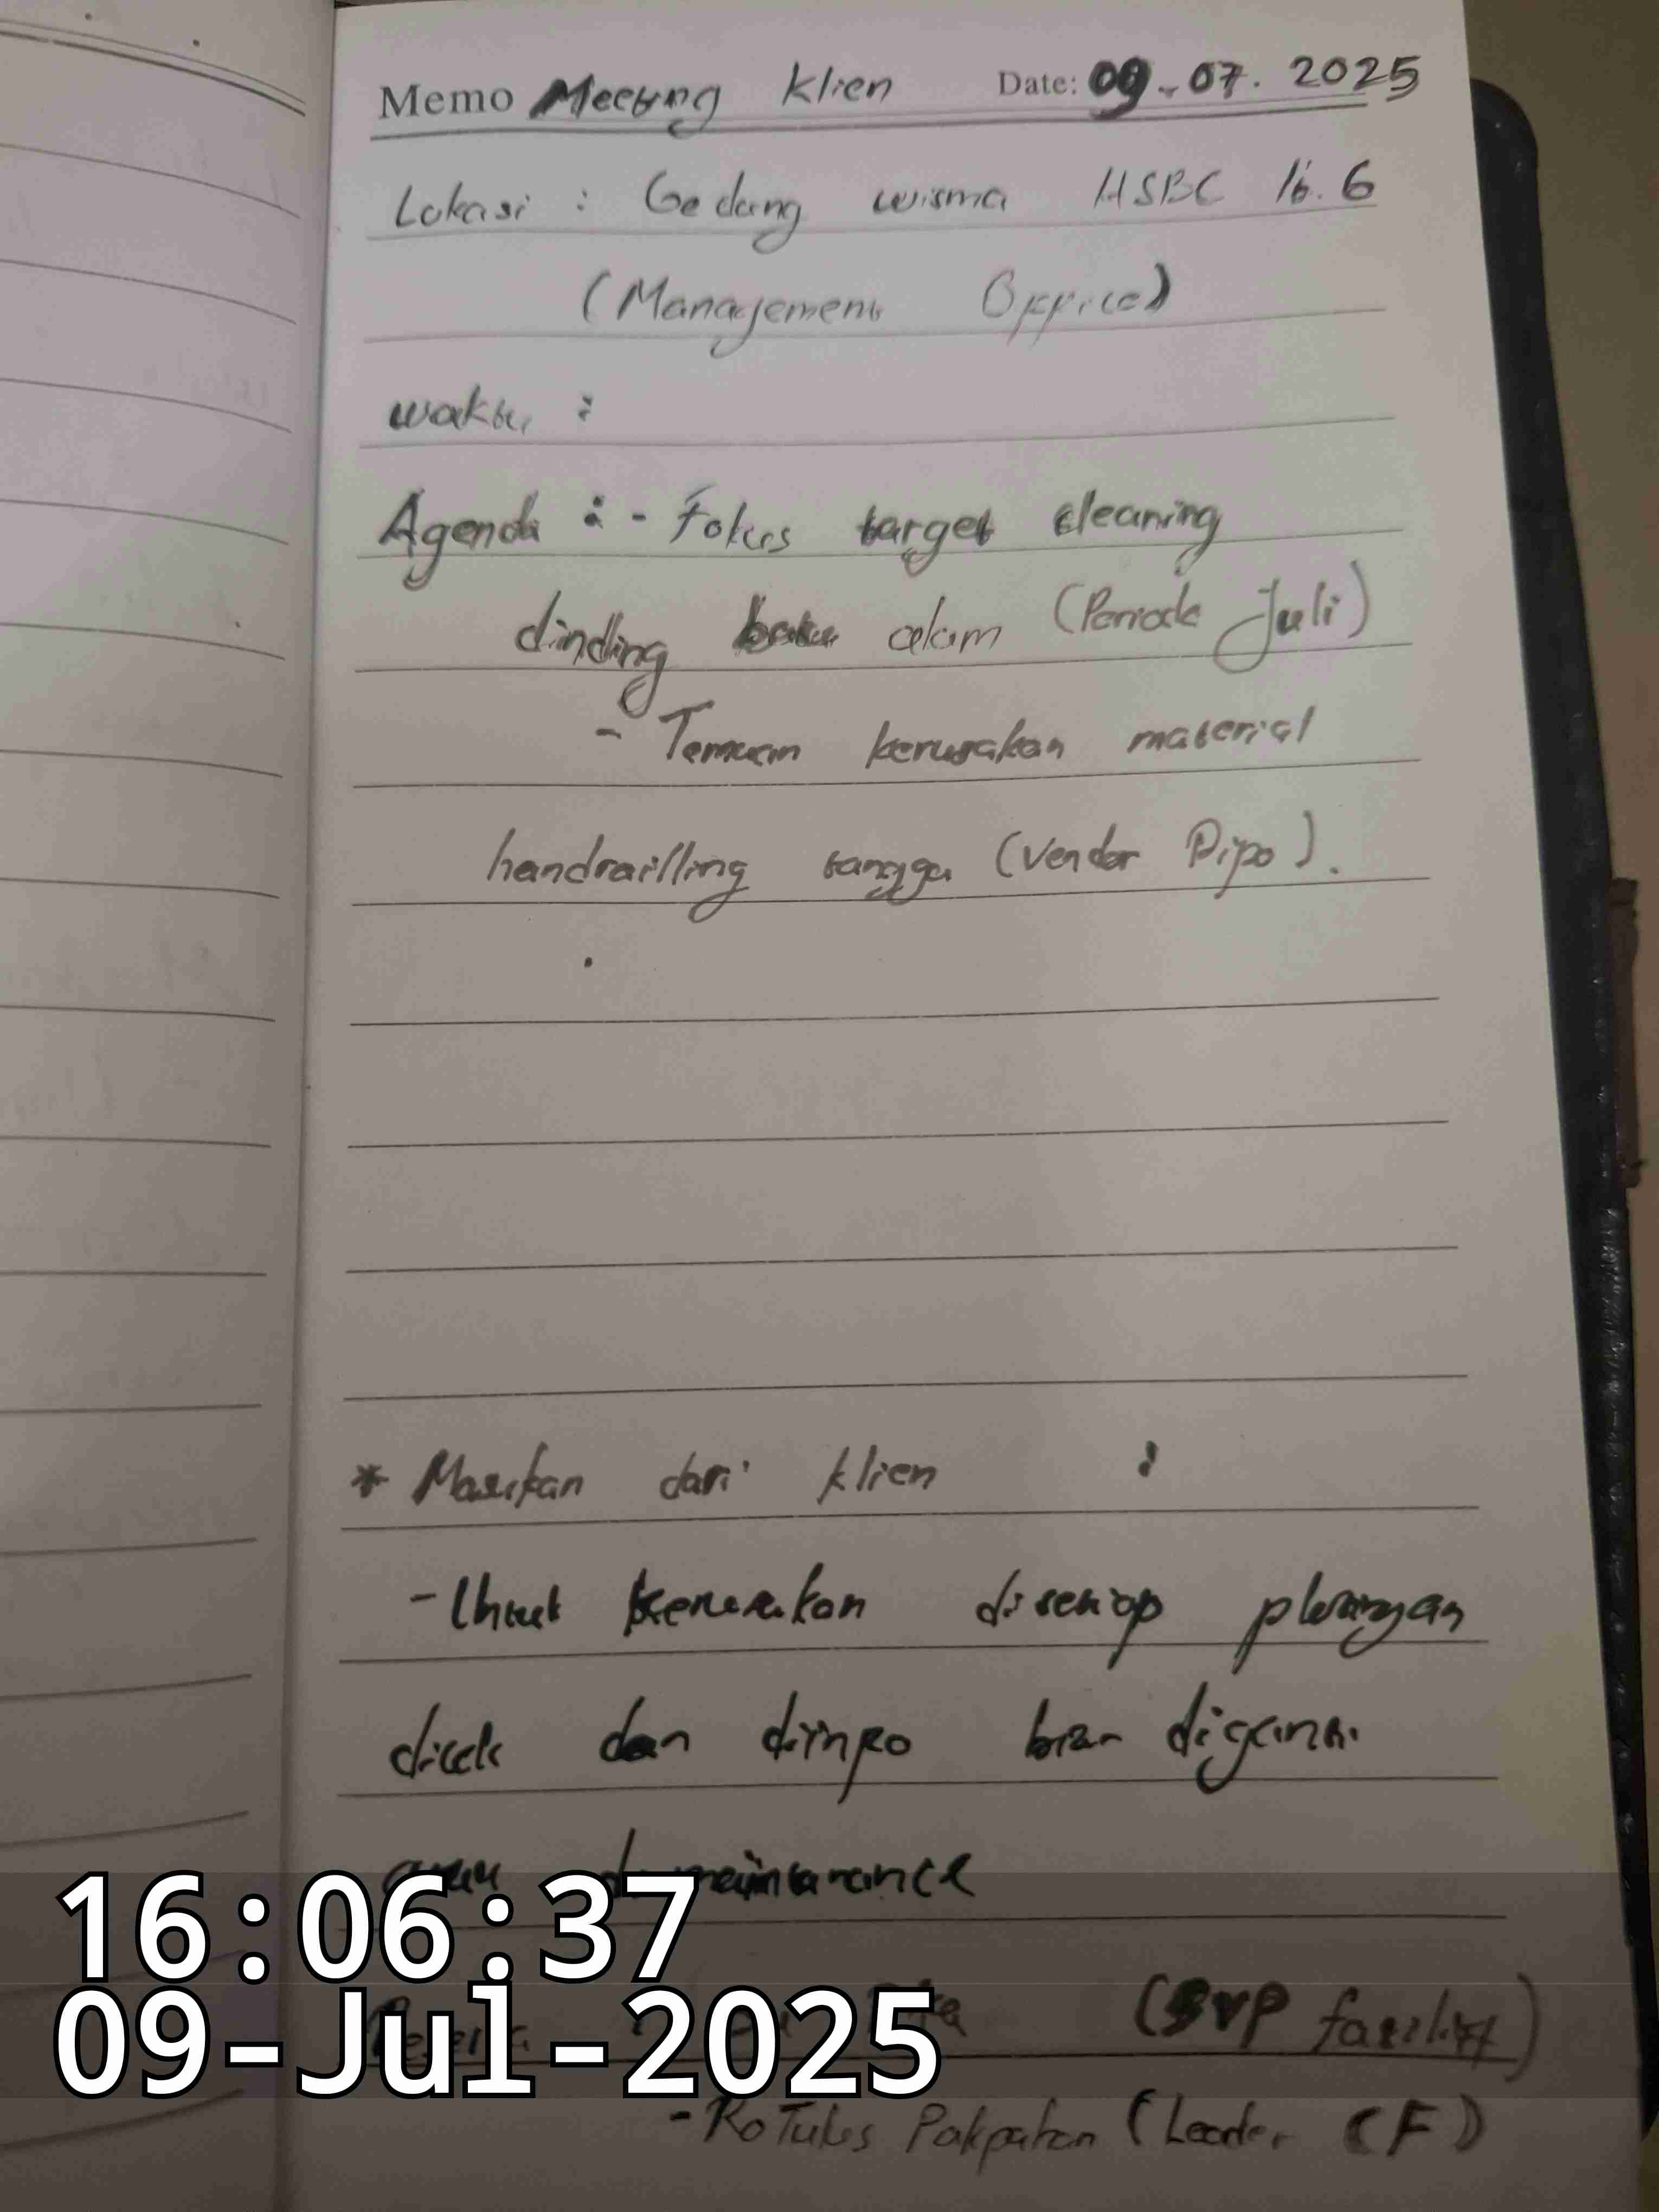 Memo Meeting Klien Date: 09-07. 2025
Lokasi : Gedung wisma HSBC lt. 6
(Management Office)
waktu :
Agenda : - Fokus target cleaning
dinding batu alam (Periode Juli)
- Temuan kerusakan material
handrailling tangga (Vendor Dipo).
* Masukan dari klien :
- Untuk kerusakan disetiap
dicek dan diinfo biar diganti
atau di maintanance
16:06:37
09-Jul-2025
Peserta : (SVP facility)
- Ro Tulus Pakpahan (Leader CF)